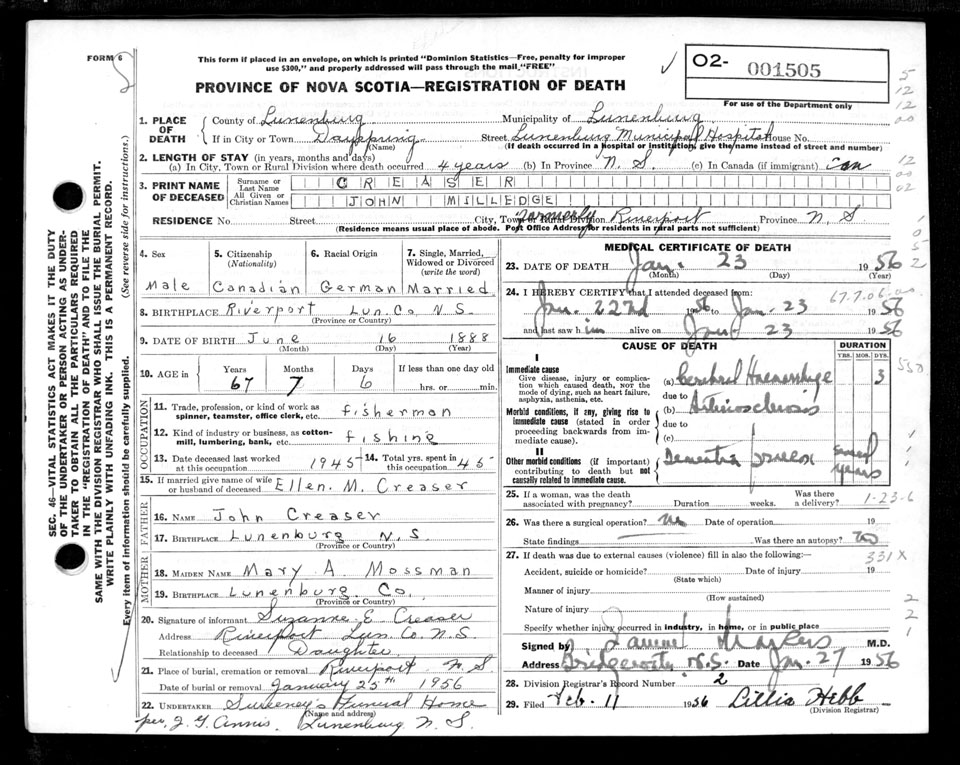 FORM 6
This form if placed in an envelope, on which is printed "Dominion Statistics—Free, penalty for improper
use $300," and properly addressed will pass through the mail "FREE"
O2- 001505
PROVINCE OF NOVA SCOTIA—REGISTRATION OF DEATH
For use of the Department only
1. PLACE OF DEATH
County of Lunenburg Municipality of Lunenburg
If in City or Town Dayspring Street Lunenburg Municipal Hospital House No.
(Name) (If death occurred in a hospital or institution, give the name instead of street and number)
2. LENGTH OF STAY (in years, months and days)
(a) In City, Town or Rural Division where death occurred 4 years (b) In Province N. S. (c) In Canada (if immigrant) Can
3. PRINT NAME OF DECEASED
Surname or Last Name CREASER
All Given or Christian Names JOHN MILLEDGE
RESIDENCE No. Street City, Town or Rural Division formerly Riverport Province N. S
(Residence means usual place of abode. Post Office Address for residents in rural parts not sufficient)
4. Sex
Male
5. Citizenship (Nationality)
Canadian
6. Racial Origin
German
7. Single, Married, Widowed or Divorced (write the word)
Married
8. BIRTHPLACE Riverport Lun. Co. N. S.
(Province or Country)
9. DATE OF BIRTH June 16 1888
(Month) (Day) (Year)
10. AGE in Years Months Days If less than one day old
67 7 6 hrs. or min.
OCCUPATION
11. Trade, profession, or kind of work as spinner, teamster, office clerk, etc. fisherman
12. Kind of industry or business, as cotton-mill, lumbering, bank, etc. fishing
13. Date deceased last worked at this occupation 1945 14. Total yrs. spent in this occupation 45
15. If married give name of wife or husband of deceased Ellen. M. Creaser
FATHER
16. NAME John Creaser
17. BIRTHPLACE Lunenburg N. S.
(Province or Country)
MOTHER
18. MAIDEN NAME Mary A Mossman
19. BIRTHPLACE Lunenburg Co.
(Province or Country)
20. Signature of informant Suzanne E Creaser
Address Riverport Lun. Co. N. S.
Relationship to deceased Daughter
21. Place of burial, cremation or removal Riverport N. S
Date of burial or removal January 25th 1956
22. UNDERTAKER Sweeney's Funeral Home
(Name and address)
per. Lunenburg N. S.
MEDICAL CERTIFICATE OF DEATH
23. DATE OF DEATH Jan. 23 1956
(Month) (Day) (Year)
24. I HEREBY CERTIFY that I attended deceased from:
Jan. 22nd 1956 to Jan. 23 1956
and last saw him alive on Jan. 23 1956
CAUSE OF DEATH
DURATION
YRS. MOS. DYS.
I
Immediate cause
Give disease, injury or complication which caused death, NOT the mode of dying, such as heart failure, asphyxia, asthenia, etc.
(a) Cerebral Haemorrhage 3
due to
Morbid conditions, if any, giving rise to immediate cause (stated in order proceeding backwards from immediate cause).
(b) Arteriosclerosis
due to
(c)
II
Other morbid conditions (if important) contributing to death but not causally related to immediate cause.
Dementia Praecox several years
25. If a woman, was the death associated with pregnancy? Duration weeks. Was there a delivery? 1-23-6
26. Was there a surgical operation? no Date of operation 19
State findings Was there an autopsy? no
27. If death was due to external causes (violence) fill in also the following:—
331X
Accident, suicide or homicide? Date of injury 19
(State which)
Manner of injury
(How sustained)
Nature of injury
Specify whether injury occurred in industry, in home, or in public place
Signed by M.D.
Address Bridgewater N.S. Date Jan. 27 1956
28. Division Registrar's Record Number 2
29. Filed Feb. 11 1956 Lillia Hebb
(Division Registrar)
SEC. 46—VITAL STATISTICS ACT MAKES IT THE DUTY
OF THE UNDERTAKER OR PERSON ACTING AS UNDER-
TAKER TO OBTAIN ALL THE PARTICULARS REQUIRED
IN THE "REGISTRATION OF DEATH" AND TO FILE THE
SAME WITH THE DIVISION REGISTRAR WHO SHALL ISSUE THE BURIAL PERMIT.
WRITE PLAINLY WITH UNFADING INK. THIS IS A PERMANENT RECORD.
Every item of information should be carefully supplied. (See reverse side for instructions.)